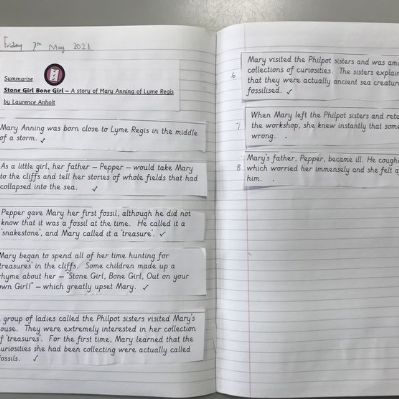 Friday 7th May 2021
Summarise
Stone Girl Bone Girl – A story of Mary Anning of Lyme Regis
by Laurence Anholt
Mary Anning was born close to Lyme Regis in the middle
of a storm.
As a little girl, her father – Pepper – would take Mary
to the cliffs and tell her stories of whole fields that had
collapsed into the sea.
Pepper gave Mary her first fossil, although he did not
know that it was a fossil at the time. He called it a
'snakestone', and Mary called it a 'treasure'.
Mary began to spend all of her time hunting for
treasures in the cliffs. Some children made up a
rhyme about her – "Stone Girl, Bone Girl, Out on your
own Girl!" – which greatly upset Mary.
group of ladies called the Philpot sisters visited Mary's
house. They were extremely interested in her collection
of 'treasures'. For the first time, Mary learned that the
curiosities she had been collecting were actually called
fossils.
6. Mary visited the Philpot sisters and was
collections of curiosities. The sisters
that they were actually ancient sea
fossilised.
7. When Mary left the Philpot sisters and
the workshop, she knew instantly that
wrong.
8. Mary's father, Pepper, became ill. He
which worried her immensely and she felt
him.